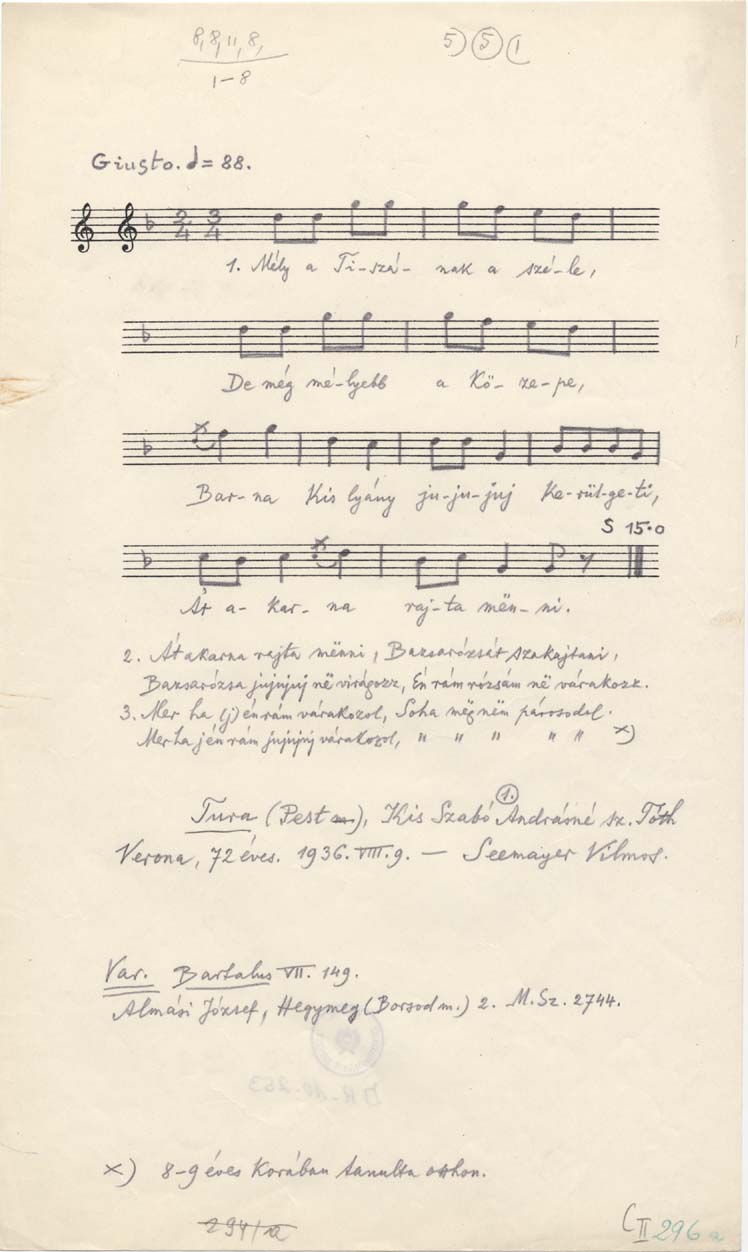 8, 8, 11, 8,
1-8
5) (5) (1
Giusto. = 88.
2/4 3/4
1. Mély a Ti-szá- nak a szé-le,
De még mé-lyebb a kö- ze-pe,
Bar-na kis lyány ju-ju-juj ke-rül-ge-ti,
S 15.0
Át a- kar- na raj-ta mën- ni.
2. Át akarna rajta mënni, Bazsarózsát szakajtani,
Bazsarózsa jujujuj në virágozz, Én rám rózsám në várakozz.
3. Mer ha (j) én rám várakozol, Soha mëg nëm párosodol.
Mer ha j én rám jujujuj várakozol, " " " " " x)
Tura (Pest m), Kis Szabó Andrásné 1. sz. Tóth
Verona, 72 éves. 1936. VIII. 9. — Seemayer Vilmos.
Var. Bartalus VII. 149.
Almási József, Hegymeg (Borsod m.) 2. M. Sz. 2744.
x) 8-9 éves korában tanulta otthon.
294/a
C II 296a